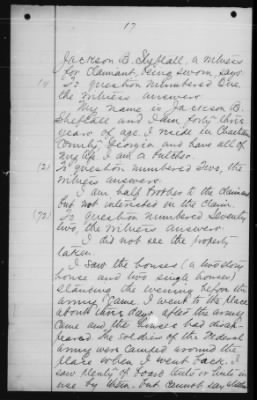 17
Jackson B. Sheftall, a witness
for claimant, being sworn says:
(1) To question numbered One
the witness answers.
My name is Jackson B.
Sheftall and I am forty three
years of age. I reside in Chatham
County, Georgia and have all of
my life. I am a butcher.
(2) To question numbered Two, the
witness answers.
I am half brother to the claimant
but not interested in the claim.
(72) To question numbered Seventy
two, the witness answers.
I did not see the property
taken.
I saw the houses (a two story
house and two single houses)
standing the evening before the
army came. I went to the place
about three days after the army
came and the houses had disap-
peared the soldiers of the Federal
Army were camped around the
place when I went back. I
saw plenty of board tents or huts in
use by them. but cannot say whether